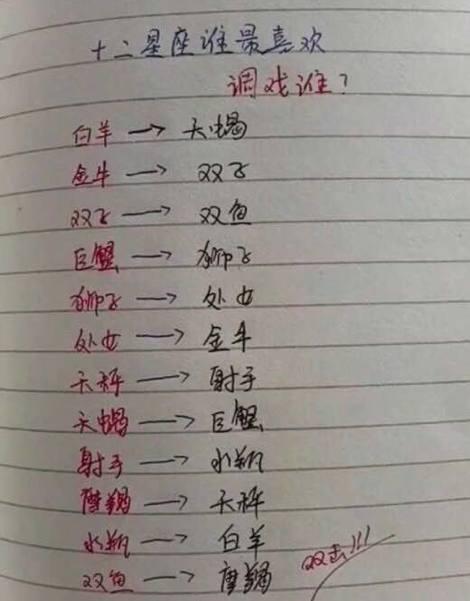 十二星座谁最喜欢
调戏谁?
白羊 → 天蝎
金牛 → 双子
双子 → 双鱼
巨蟹 → 狮子
狮子 → 处女
处女 → 金牛
天秤 → 射手
天蝎 → 巨蟹
射手 → 水瓶
摩羯 → 天秤
水瓶 → 白羊
双鱼 → 摩羯
双击!!!